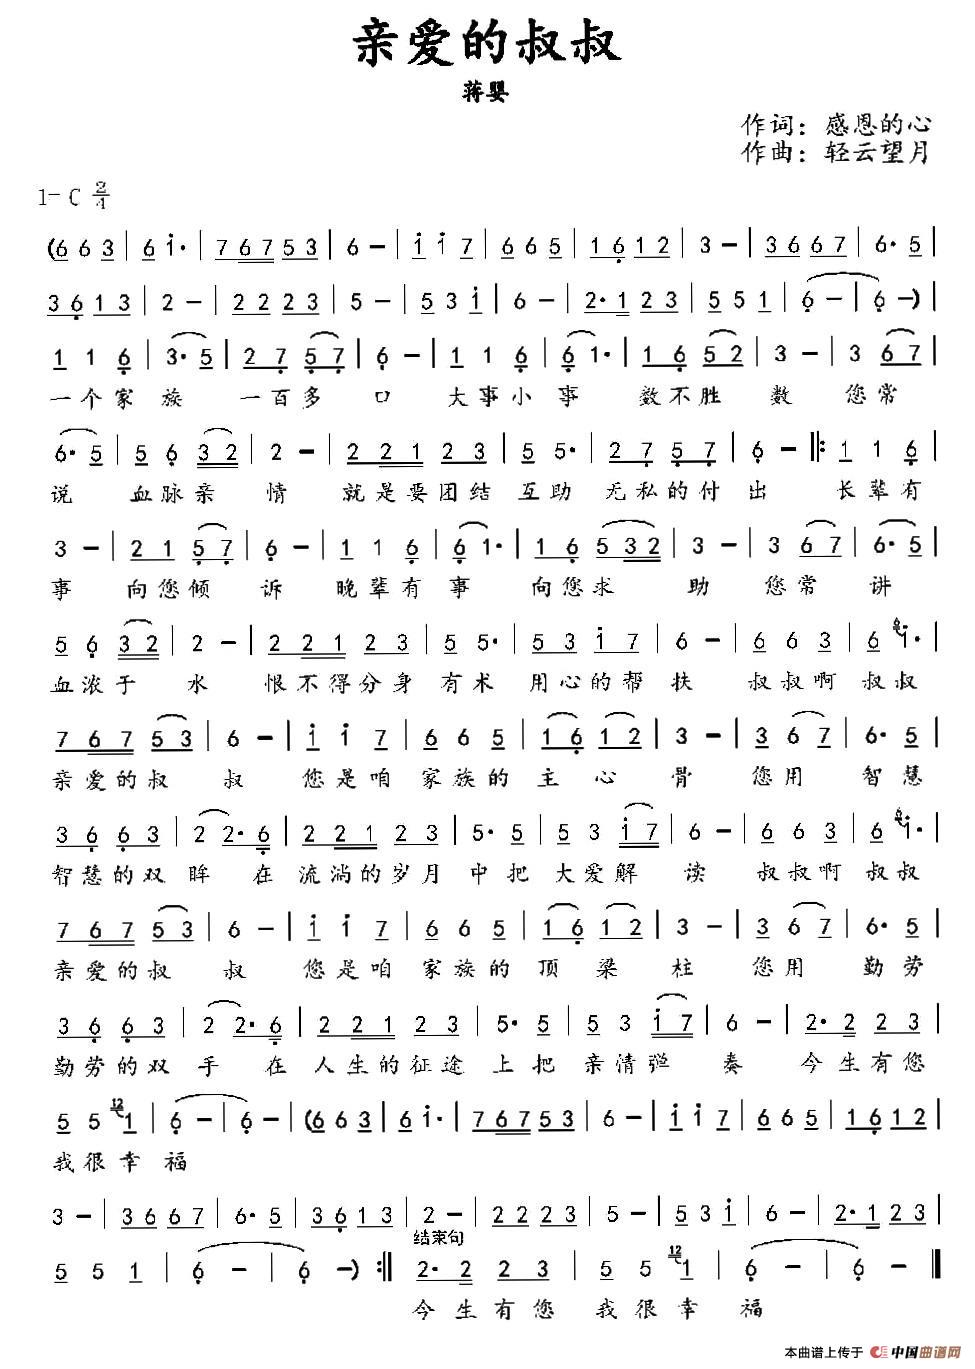 亲爱的叔叔
蒋婴
作词：感恩的心
作曲：轻云望月
1=C 2/4
(6 6 3 | 6 i· | 7 6 7 5 3 | 6 - | i i 7 | 6 6 5 | 1 6 1 2 | 3 - | 3 6 6 7 | 6· 5 |
3 6 1 3 | 2 - | 2 2 2 3 | 5 - | 5 3 i | 6 - | 2· 1 2 3 | 5 5 1 | 6 - | 6 -) |
1 1 6 | 3· 5 | 2 7 5 7 | 6 - | 1 1 6 | 6 1· | 1 6 5 2 | 3 - | 3 6 7 |
一个家族 一百多口 大事小事 数不胜数 您常
6· 5 | 5 6 3 2 | 2 - | 2 2 1 2 3 | 5 5· | 2 7 5 7 | 6 - |: 1 1 6 |
说 血脉亲情 就是要团结互助 无私的付出 长辈有
3 - | 2 1 5 7 | 6 - | 1 1 6 | 6 1· | 1 6 5 3 2 | 3 - | 3 6 7 | 6· 5 |
事 向您倾诉 晚辈有事 向您求助 您常讲
5 6 3 2 | 2 - | 2 2 1 2 3 | 5 5· | 5 3 i 7 | 6 - | 6 6 3 | 6 i· |
血浓于水 恨不得分身有术 用心的帮扶 叔叔啊叔叔
7 6 7 5 3 | 6 - | i i 7 | 6 6 5 | 1 6 1 2 | 3 - | 3 6 7 | 6· 5 |
亲爱的叔叔 您是咱家族的主心骨 您用智慧
3 6 6 3 | 2 2· 6 | 2 2 1 2 3 | 5· 5 | 5 3 i 7 | 6 - | 6 6 3 | 6 i· |
智慧的双眸在流淌的岁月中把大爱解读 叔叔啊叔叔
7 6 7 5 3 | 6 - | i i 7 | 6 6 5 | 1 6 1 2 | 3 - | 3 6 7 | 6· 5 |
亲爱的叔叔 您是咱家族的顶梁柱 您用勤劳
3 6 6 3 | 2 2· 6 | 2 2 1 2 3 | 5· 5 | 5 3 i 7 | 6 - | 2· 2 2 3 |
勤劳的双手在人生的征途上把亲情弹奏 今生有您
5 5 12 1 | 6 - | 6 - | (6 6 3 | 6 i· | 7 6 7 5 3 | 6 - | i i 7 | 6 6 5 | 1 6 1 2 |
我很幸福
3 - | 3 6 6 7 | 6· 5 | 3 6 1 3 | 2 - | 2 2 2 3 | 5 - | 5 3 i | 6 - | 2· 1 2 3 |
结束句
5 5 1 | 6 - | 6 -) :| 2· 2 2 3 | 5 5 12 1 | 6 - | 6 - ‖
今生有您我很幸福
本曲谱上传于 中国曲谱网